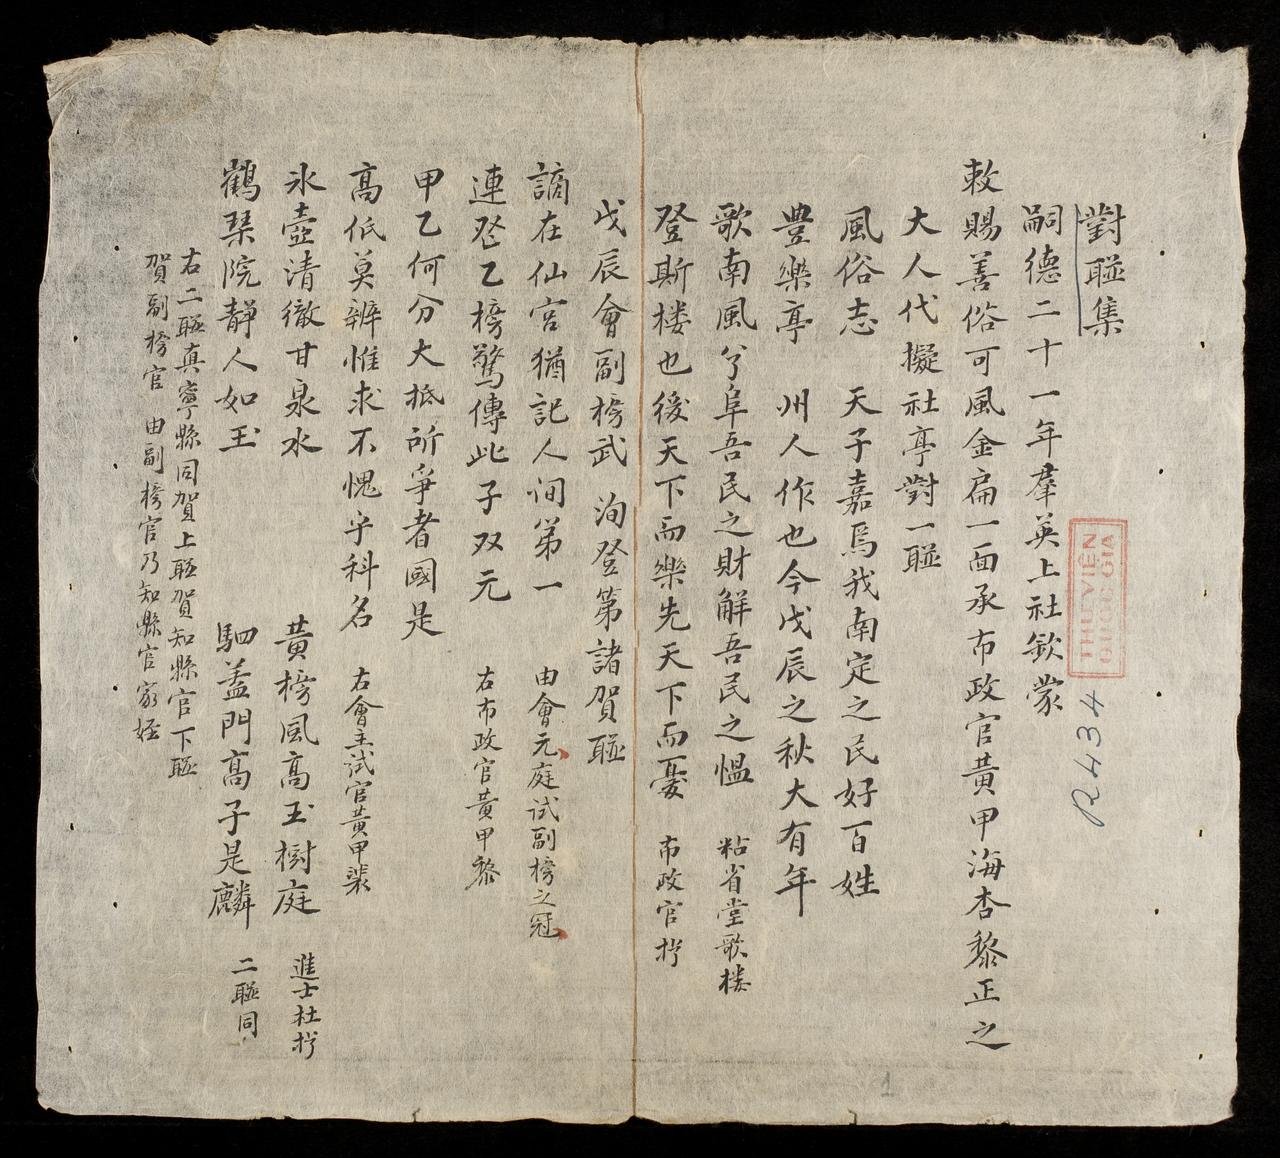 對聯集
嗣德二十一年羣英上社欽蒙
敕賜善俗可風金扁一面承布政官黃甲海杏黎正之
大人代擬社亭對一聯
風俗志 天子嘉焉我南定之民好百姓
豊樂亭 州人作也今戊辰之秋大有年
歌南風兮阜吾民之財解吾民之愠 粘省堂歌楼
登斯楼也後天下而樂先天下而憂 布政官抄
戊辰會副榜武洵登第諸賀聯
謫在仙宮猶記人间第一 由會元庭試副榜之冠
連登乙榜驚傳此子双元 右布政官黃甲黎
甲乙何分大抵所爭者國是
高低莫辨惟求不愧乎科名 右會主試官黃甲裴
氷壺清徹甘泉水 黃榜風高玉樹庭 進士杜抄
鶴琹院靜人如玉 駟盖門高子是麟 二聯同
右二聯真寧縣同賀上聯賀知縣官下聯
賀副榜官 由副榜官乃知縣官家姪
THƯ VIỆN
QUỐC GIA
R.434
1